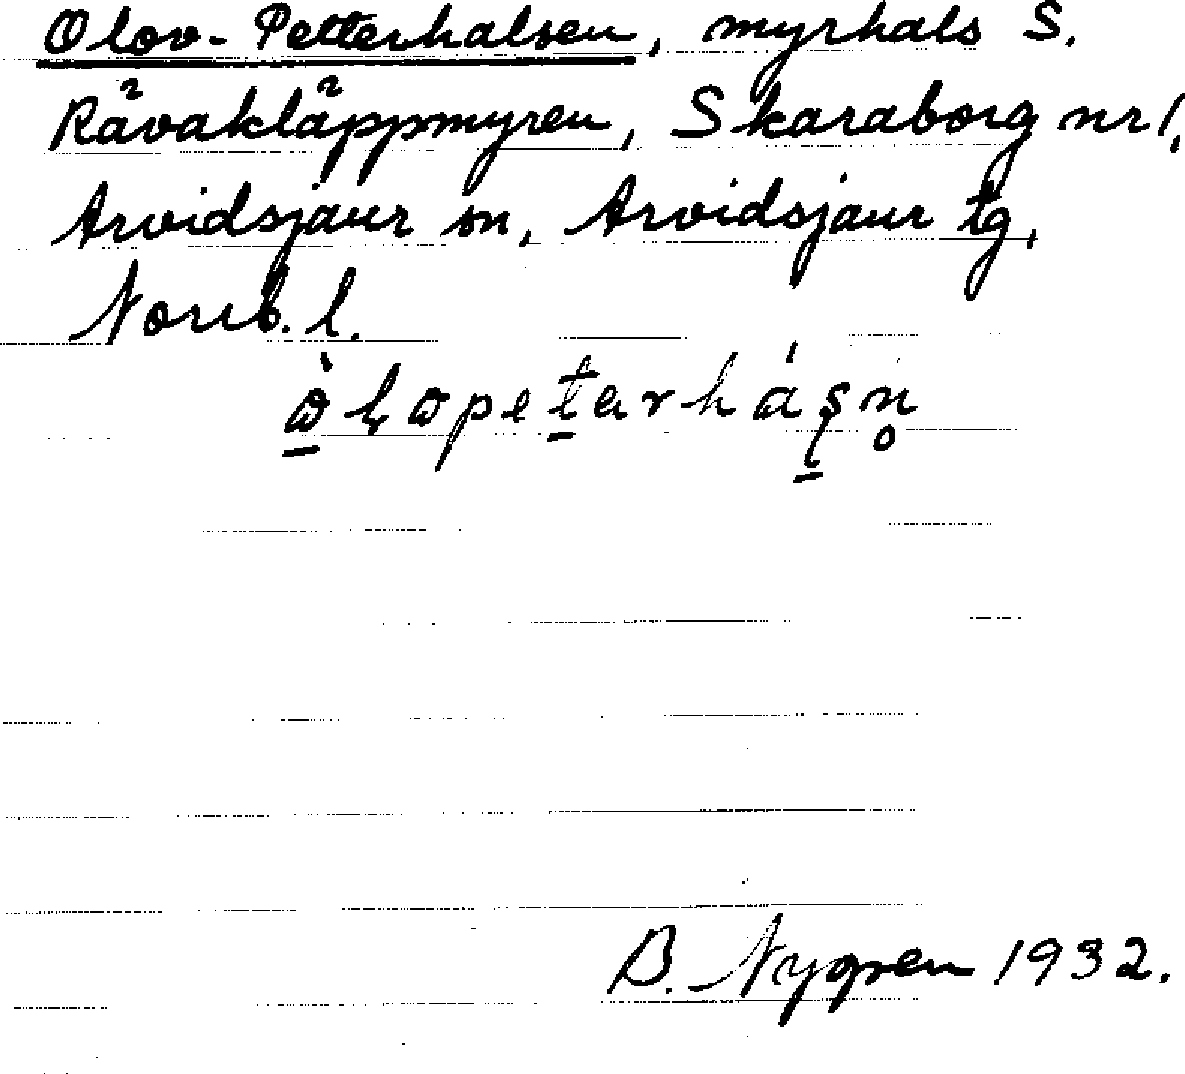 Olov-Petterhalsen, myrhals S.
Rävakläppmyren, Skaraborg nr 1,
Arvidsjaur sn, Arvidsjaur tg,
Norrb. l.
B. Nygren 1932.